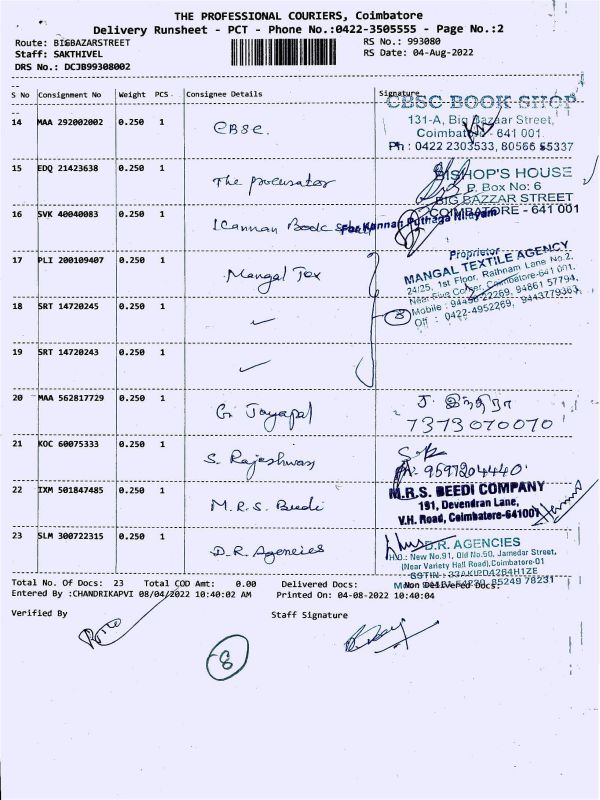 THE PROFESSIONAL COURIERS, Coimbatore
Delivery Runsheet - PCT - Phone No.:0422-3505555 - Page No.:2
Route: BIGBAZARSTREET RS No.: 993080
Staff: SAKTHIVEL RS Date: 04-Aug-2022
DRS No.: DCJB99308002
S No Consignment No Weight PCS Consignee Details Signature
CBSC BOOK SHOP
14 MAA 292002002 0.250 1 CBSC. 131-A, Big Bazaar Street,
Coimbatore - 641 001
Ph : 0422 2303533, 80566 55337
15 EDQ 21423638 0.250 1 The procurator BISHOP'S HOUSE
P. Box No: 6
BIG BAZZAR STREET
COIMBATORE - 641 001
16 SVK 40040083 0.250 1 Kannan Book For Kannan Puthaga Nilayam
17 PLI 200109407 0.250 1 Mangal Tex Proprietor
MANGAL TEXTILE AGENCY
24/25, 1st Floor, Rathnam Lane No.2,
Near Five Corner, Coimbatore-641 001.
Mobile : 94430 22269, 94861 57794,
Off : 0422-4952269, 9443779363
18 SRT 14720245 0.250 1 8
19 SRT 14720243 0.250 1
20 MAA 562817729 0.250 1 G. Jayapal ர. இந்திரா
7373070070
21 KOC 60075333 0.250 1 S. Rajeshwari
9597204440
22 IXM 501847485 0.250 1 M.R.S. Beedi M.R.S. BEEDI COMPANY
191, Devendran Lane,
V.H. Road, Coimbatore-641001
23 SLM 300722315 0.250 1 D.R. Agencies D.R. AGENCIES
H.O.: New No.91, Old No.50, Jamedar Street,
(Near Variety Hall Road), Coimbatore-01
GSTIN : 33AKUPD4264H1ZE
85249 78231
Total No. Of Docs: 23 Total COD Amt: 0.00 Delivered Docs: Non Delivered Docs:
Entered By :CHANDRIKAPVI 08/04/2022 10:40:02 AM Printed On: 04-08-2022 10:40:04
Verified By Staff Signature
8